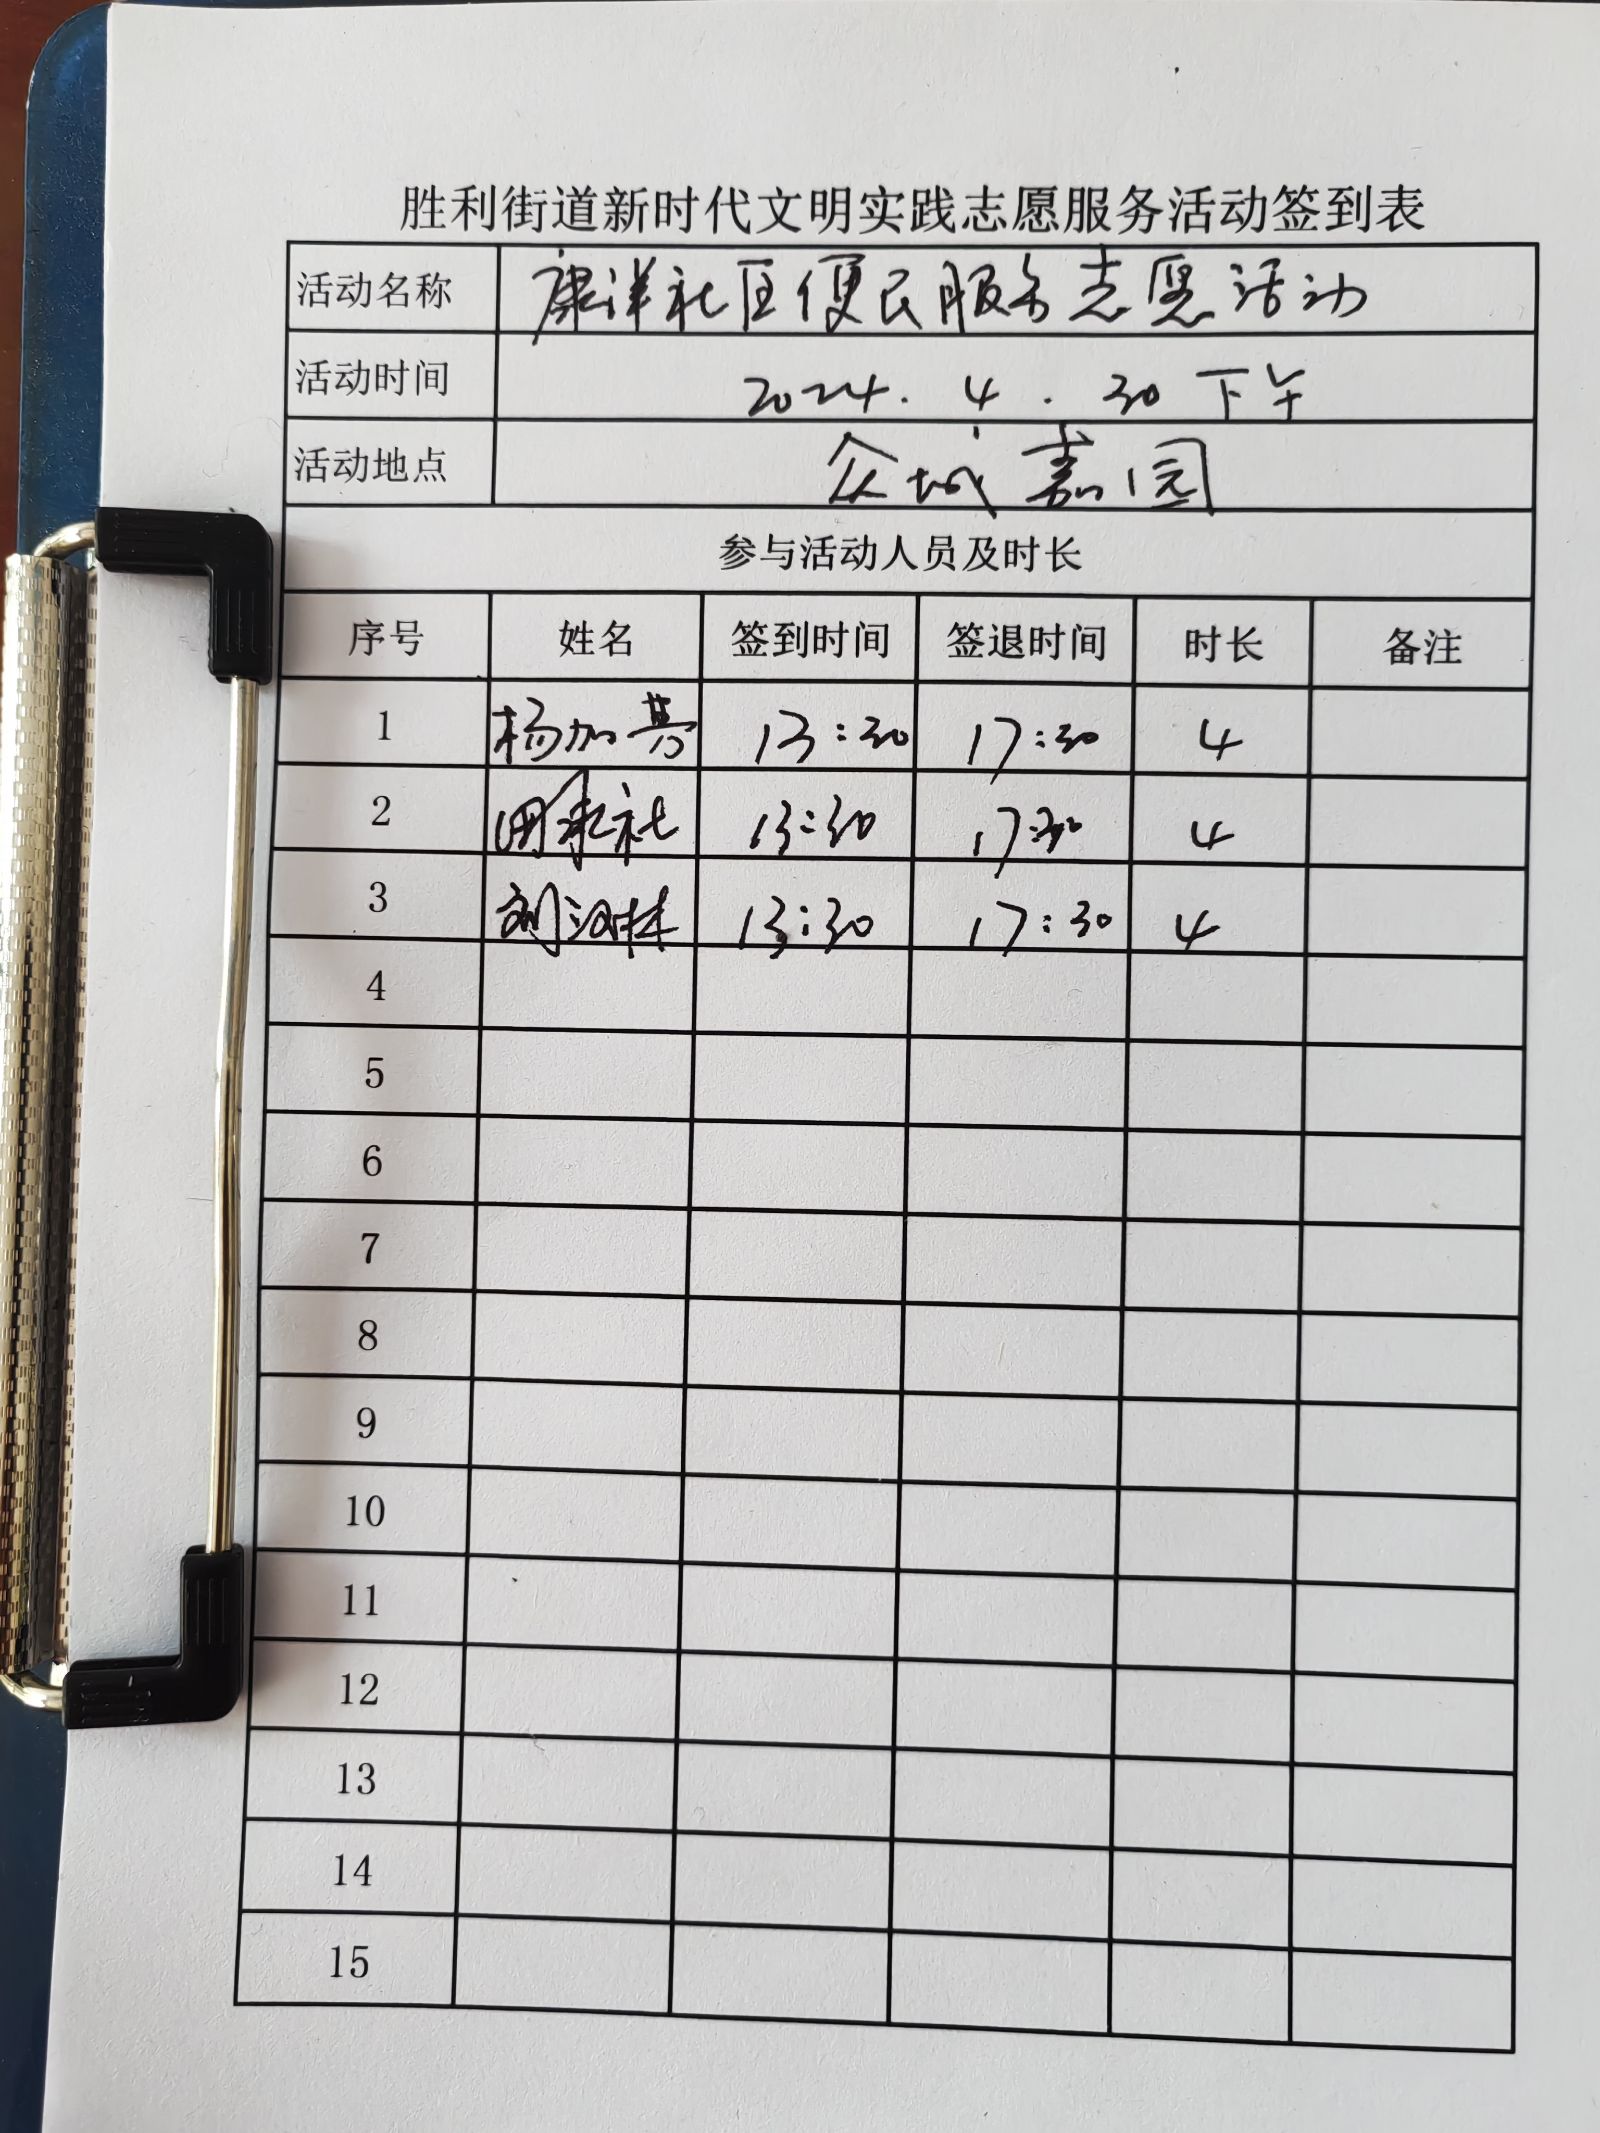 胜利街道新时代文明实践志愿服务活动签到表
活动名称 康洋社区便民服务志愿活动
活动时间 2024.4.30下午
活动地点 众城嘉园
参与活动人员及时长
序号 姓名 签到时间 签退时间 时长 备注
1 杨加芬 13:30 17:30 4
2 13:30 17:30 4
3 刘汉林 13:30 17:30 4
4
5
6
7
8
9
10
11
12
13
14
15